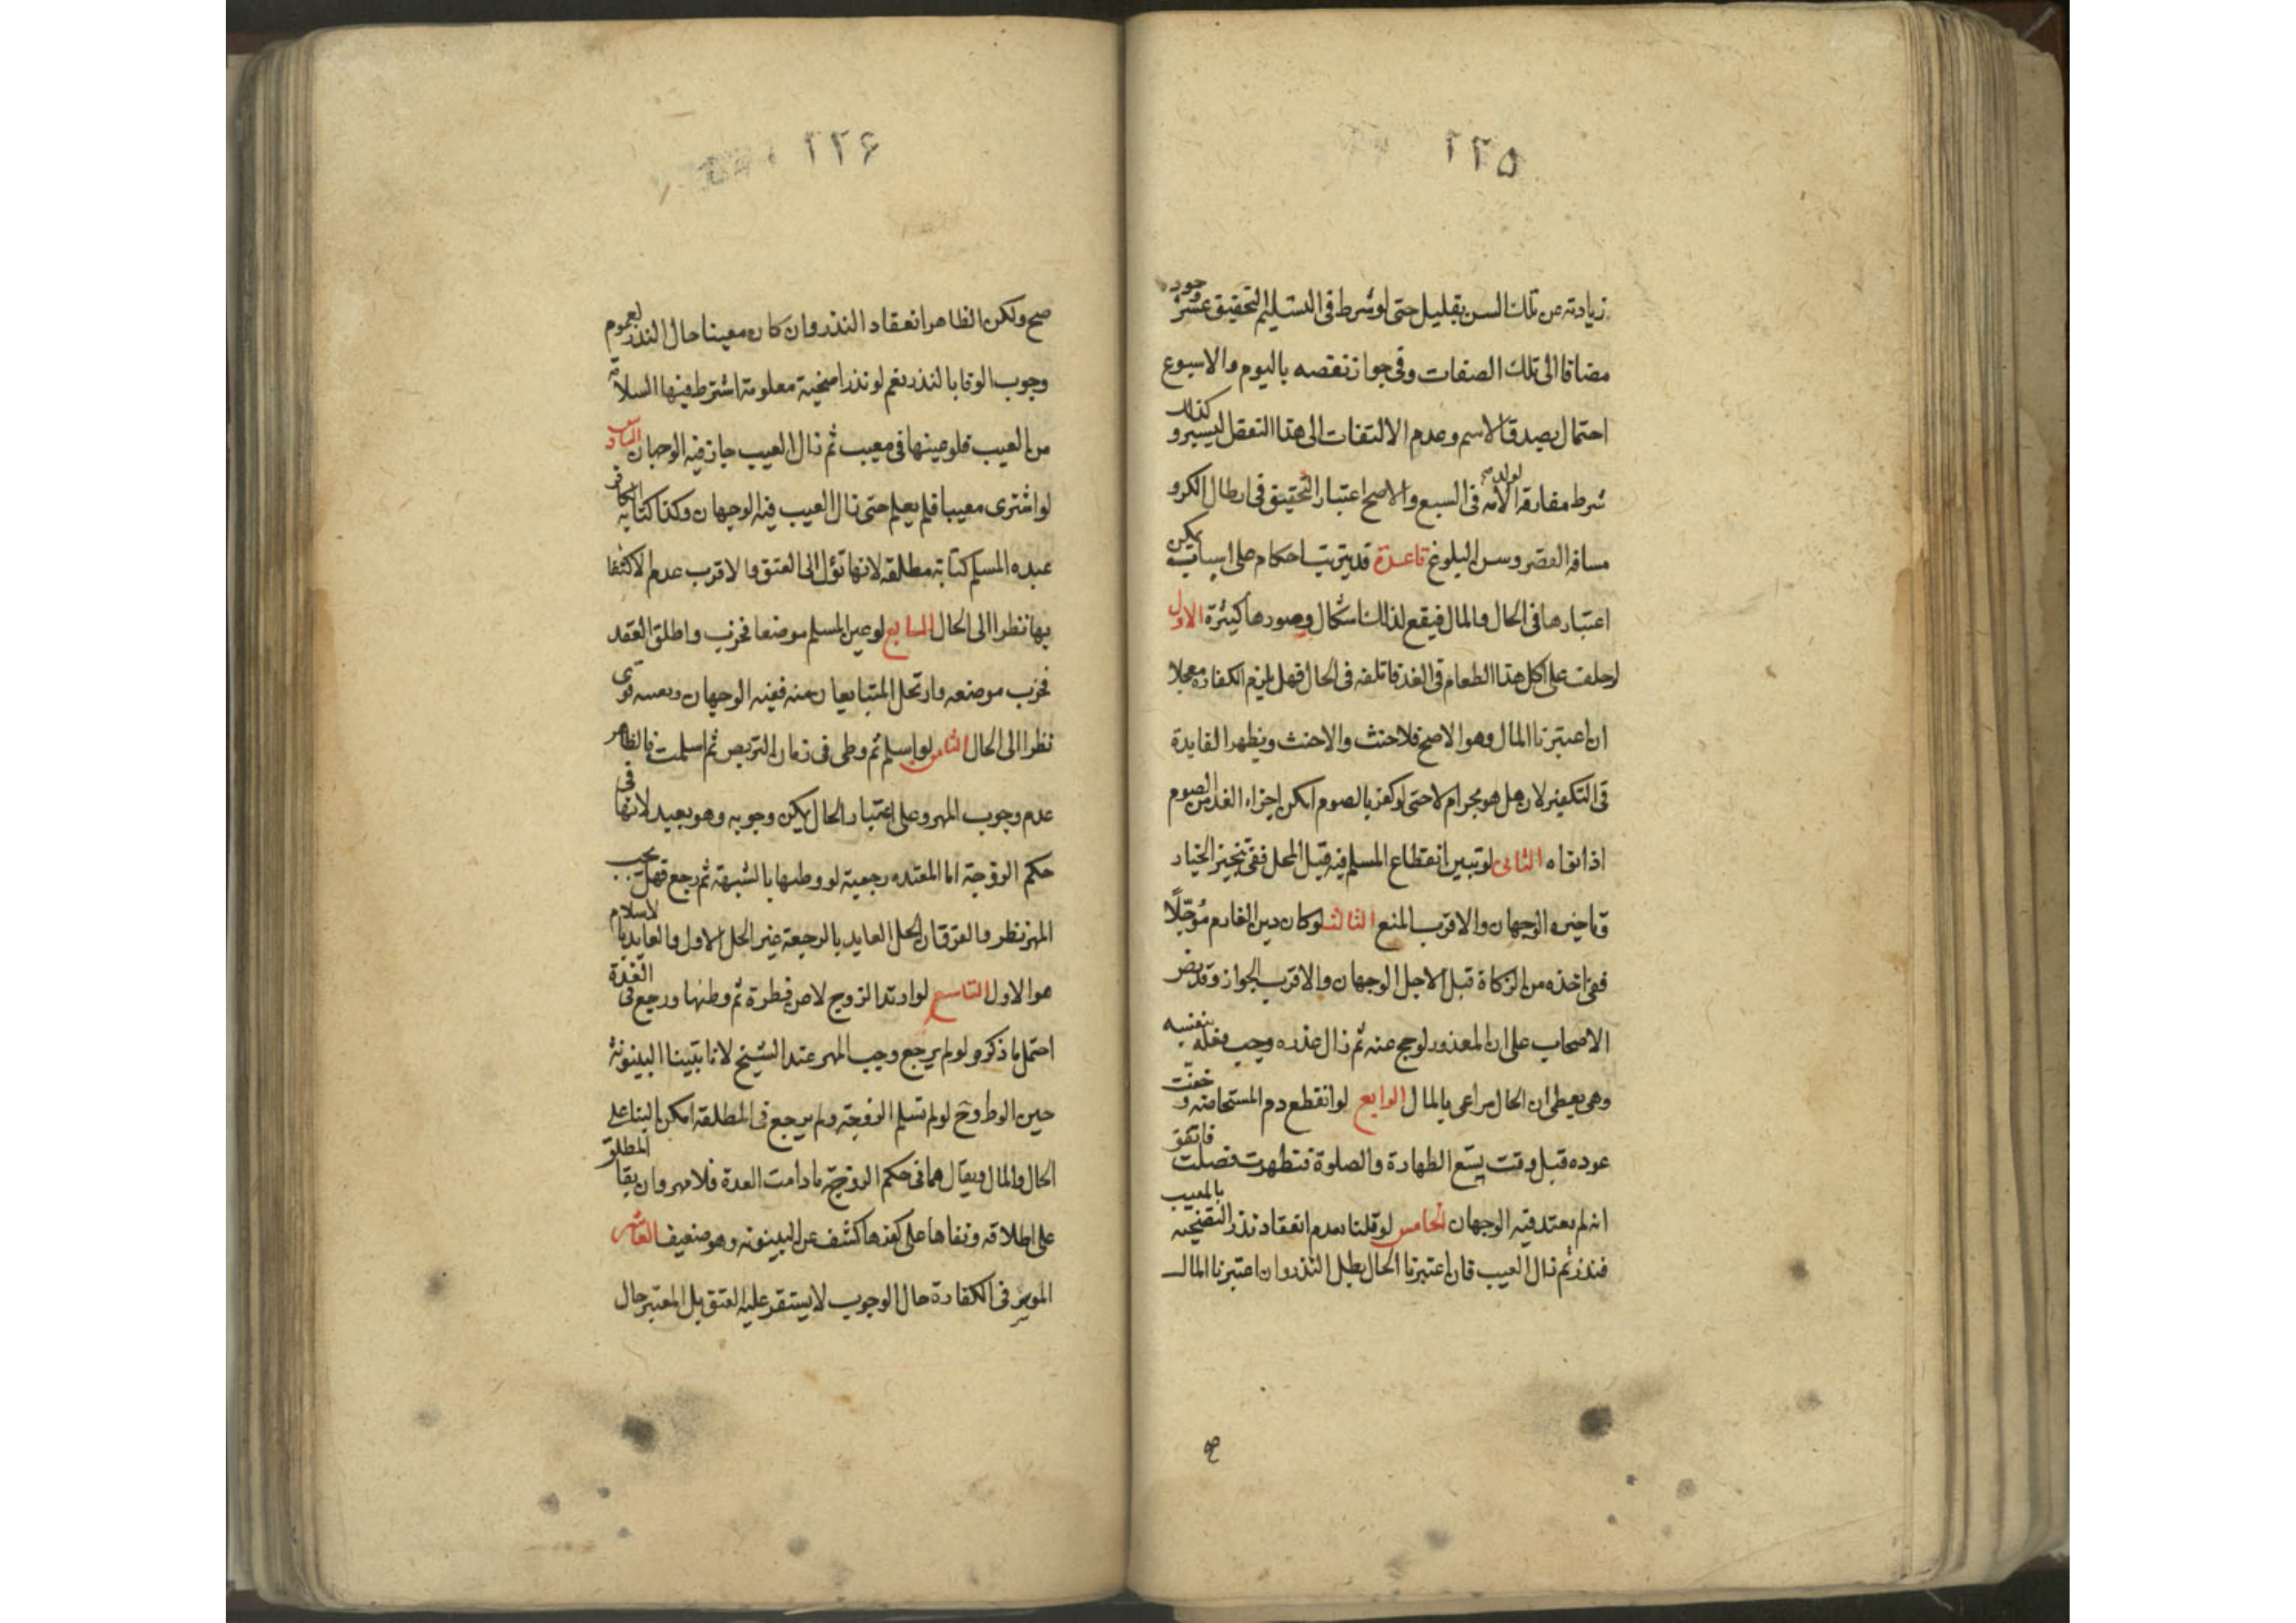 ٢٢٥
زيادته عن تلك السن بقليل حتى لو شرط فى التسليم التحقيق عسر وجود
مضافا الى تلك الصفات وفى جواز نقصه باليوم والاسبوع
احتمال يصدق الاسم وعدم الالتفات الى هذا النقص اليسير وكذلك
شرط مفارقة الامة لولدها فى السبع والاصح اعتبار التحقيق فى ابطال الكر و
مسافة القصر وسن البلوغ قاعدة قد يترتب احكام على اسباب يمكن
اعتبارها فى الحال والمال فيقع لذلك اشكال وصورها كثيرة الاول
لو حلف على اكل هذا الطعام فى الغد فاتلفه فى الحال فهل يلزم الكفارة معجلا
ان اعتبرنا المال وهو الاصح فلا حنث والا حنث ويظهر الفايدة
فى التكفير لان هل هو مجزام لا حتى لو كفر بالصوم امكن اجزاء الغد من الصوم
اذا نواه الثانى لو تبين انقطاع المسلم فيه قبل المحل ففى تنجيز الخيار
وتاخيره الوجهان والاقرب المنع الثالث لو كان دين الغارم مؤجلا
ففى اخذه من الزكاة قبل الاجل الوجهان والاقرب الجواز وقد نص
الاصحاب على ان المعذور لو حج عنه ثم زال عذره وجب فعله بنفسه
وهى يعطى ان الحال مراعى بالمال الرابع لو انقطع دم المستحاضة وخفت
عوده قبل وقت يسع الطهارة والصلوة فتطهرت فصلت فاتفق
انه لم يعتد فيه الوجهان الخامس لو قلنا بعدم انعقاد نذر التضحية بالمعيب
فنذر ثم زال العيب فان اعتبرنا الحال بطل النذر وان اعتبرنا المال
صح
٢٢۶
صح ولكن الظاهر انعقاد النذر وان كان معيبا حال النذر لعموم
وجوب الوفا بالنذر نعم لو نذر اضحية معلومة اشترط فيها السلامة
من العيب فلو عينها فى معيب ثم زال العيب جاز فيه الوجهان السادس
لو اشترى معيبا فلم يعلم حتى زال العيب فيه الوجهان وكذا كتابة الكافر
عبده المسلم كتابة مطلقة لانها تؤل الى العتق والاقرب عدم الاكتفا
بها نظرا الى الحال السابع لو عين المسلم موضعا فخرب واطلق العقد
فخرب موضعه وارتحل المتبايعان منه ففيه الوجهان وبعينه قوى
نظرا الى الحال الثامن لو اسلم ثم وطى فى زمان التربص ثم اسلمت فالظاهر
عدم وجوب المهر وعلى اعتبار الحال يمكن وجوبه وهو بعيد لانها فى
حكم الزوجة اما المعتده رجعية لو وطئها بالشبهة ثم رجع فهل يجب
المهر نظر والفرق ان الحل العايد بالرجعة غير الحل الاول والعايد بالاسلام
هو الاول التاسع لو ارتد الزوج لا عن فطرة ثم وطئها ورجع فى العدة
احتمل ما ذكر ولو لم يرجع وجب المهر عند الشيخ لانا تبينا البينونة
حين الوطى وح لو لم تسلم الزوجة ولم يرجع فى المطلقة امكن البنا على
الحال والمال ويقال هما فى حكم الزوجية ما دامت العدة فلا مهر وان بقا المطلق
على اطلاقه وبقاها على كفرها كشف عن البينونة وهو ضعيف العاشر
الموسر فى الكفارة حال الوجوب لا يستقر عليه العتق بل المعتبر حال